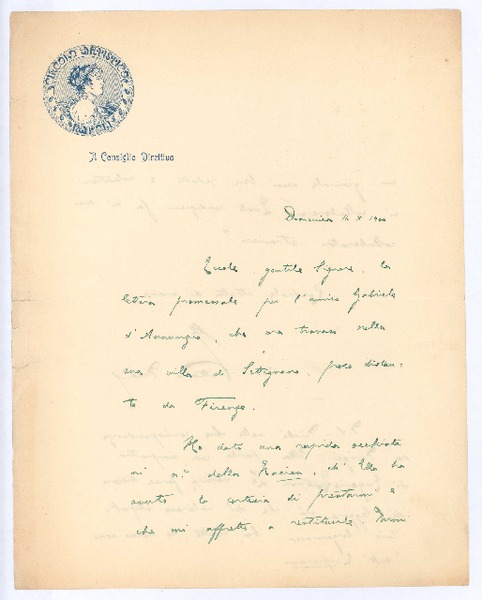 CIRCOLO ARTISTICO
NAPOLI
Il Consiglio Direttivo
Domenica 14 X 1900
gentile Signore, la
lettera promessale per l'amico Gabriele
d'Annunzio, che ora trovasi nella
sua villa di Settignano, poco distan-
te da Firenze.
Ho dato una rapida occhiata
ai n.i della Raccolta, ch'Ella ha
avuto la cortesia di prestarmi e
che mi affretto a restituirle